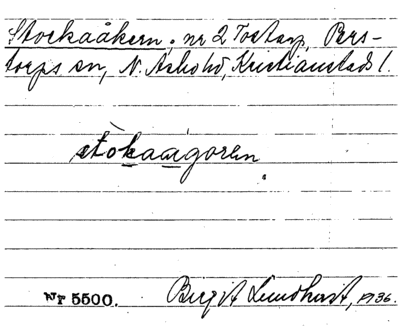 Stockaåkern. nr 2 Tostarp, Pers-
torps sn, N. Åsbohd, Kristianstads l.
stòkaagoren
Nr 5500. Birgit Lundhavst, 1936.